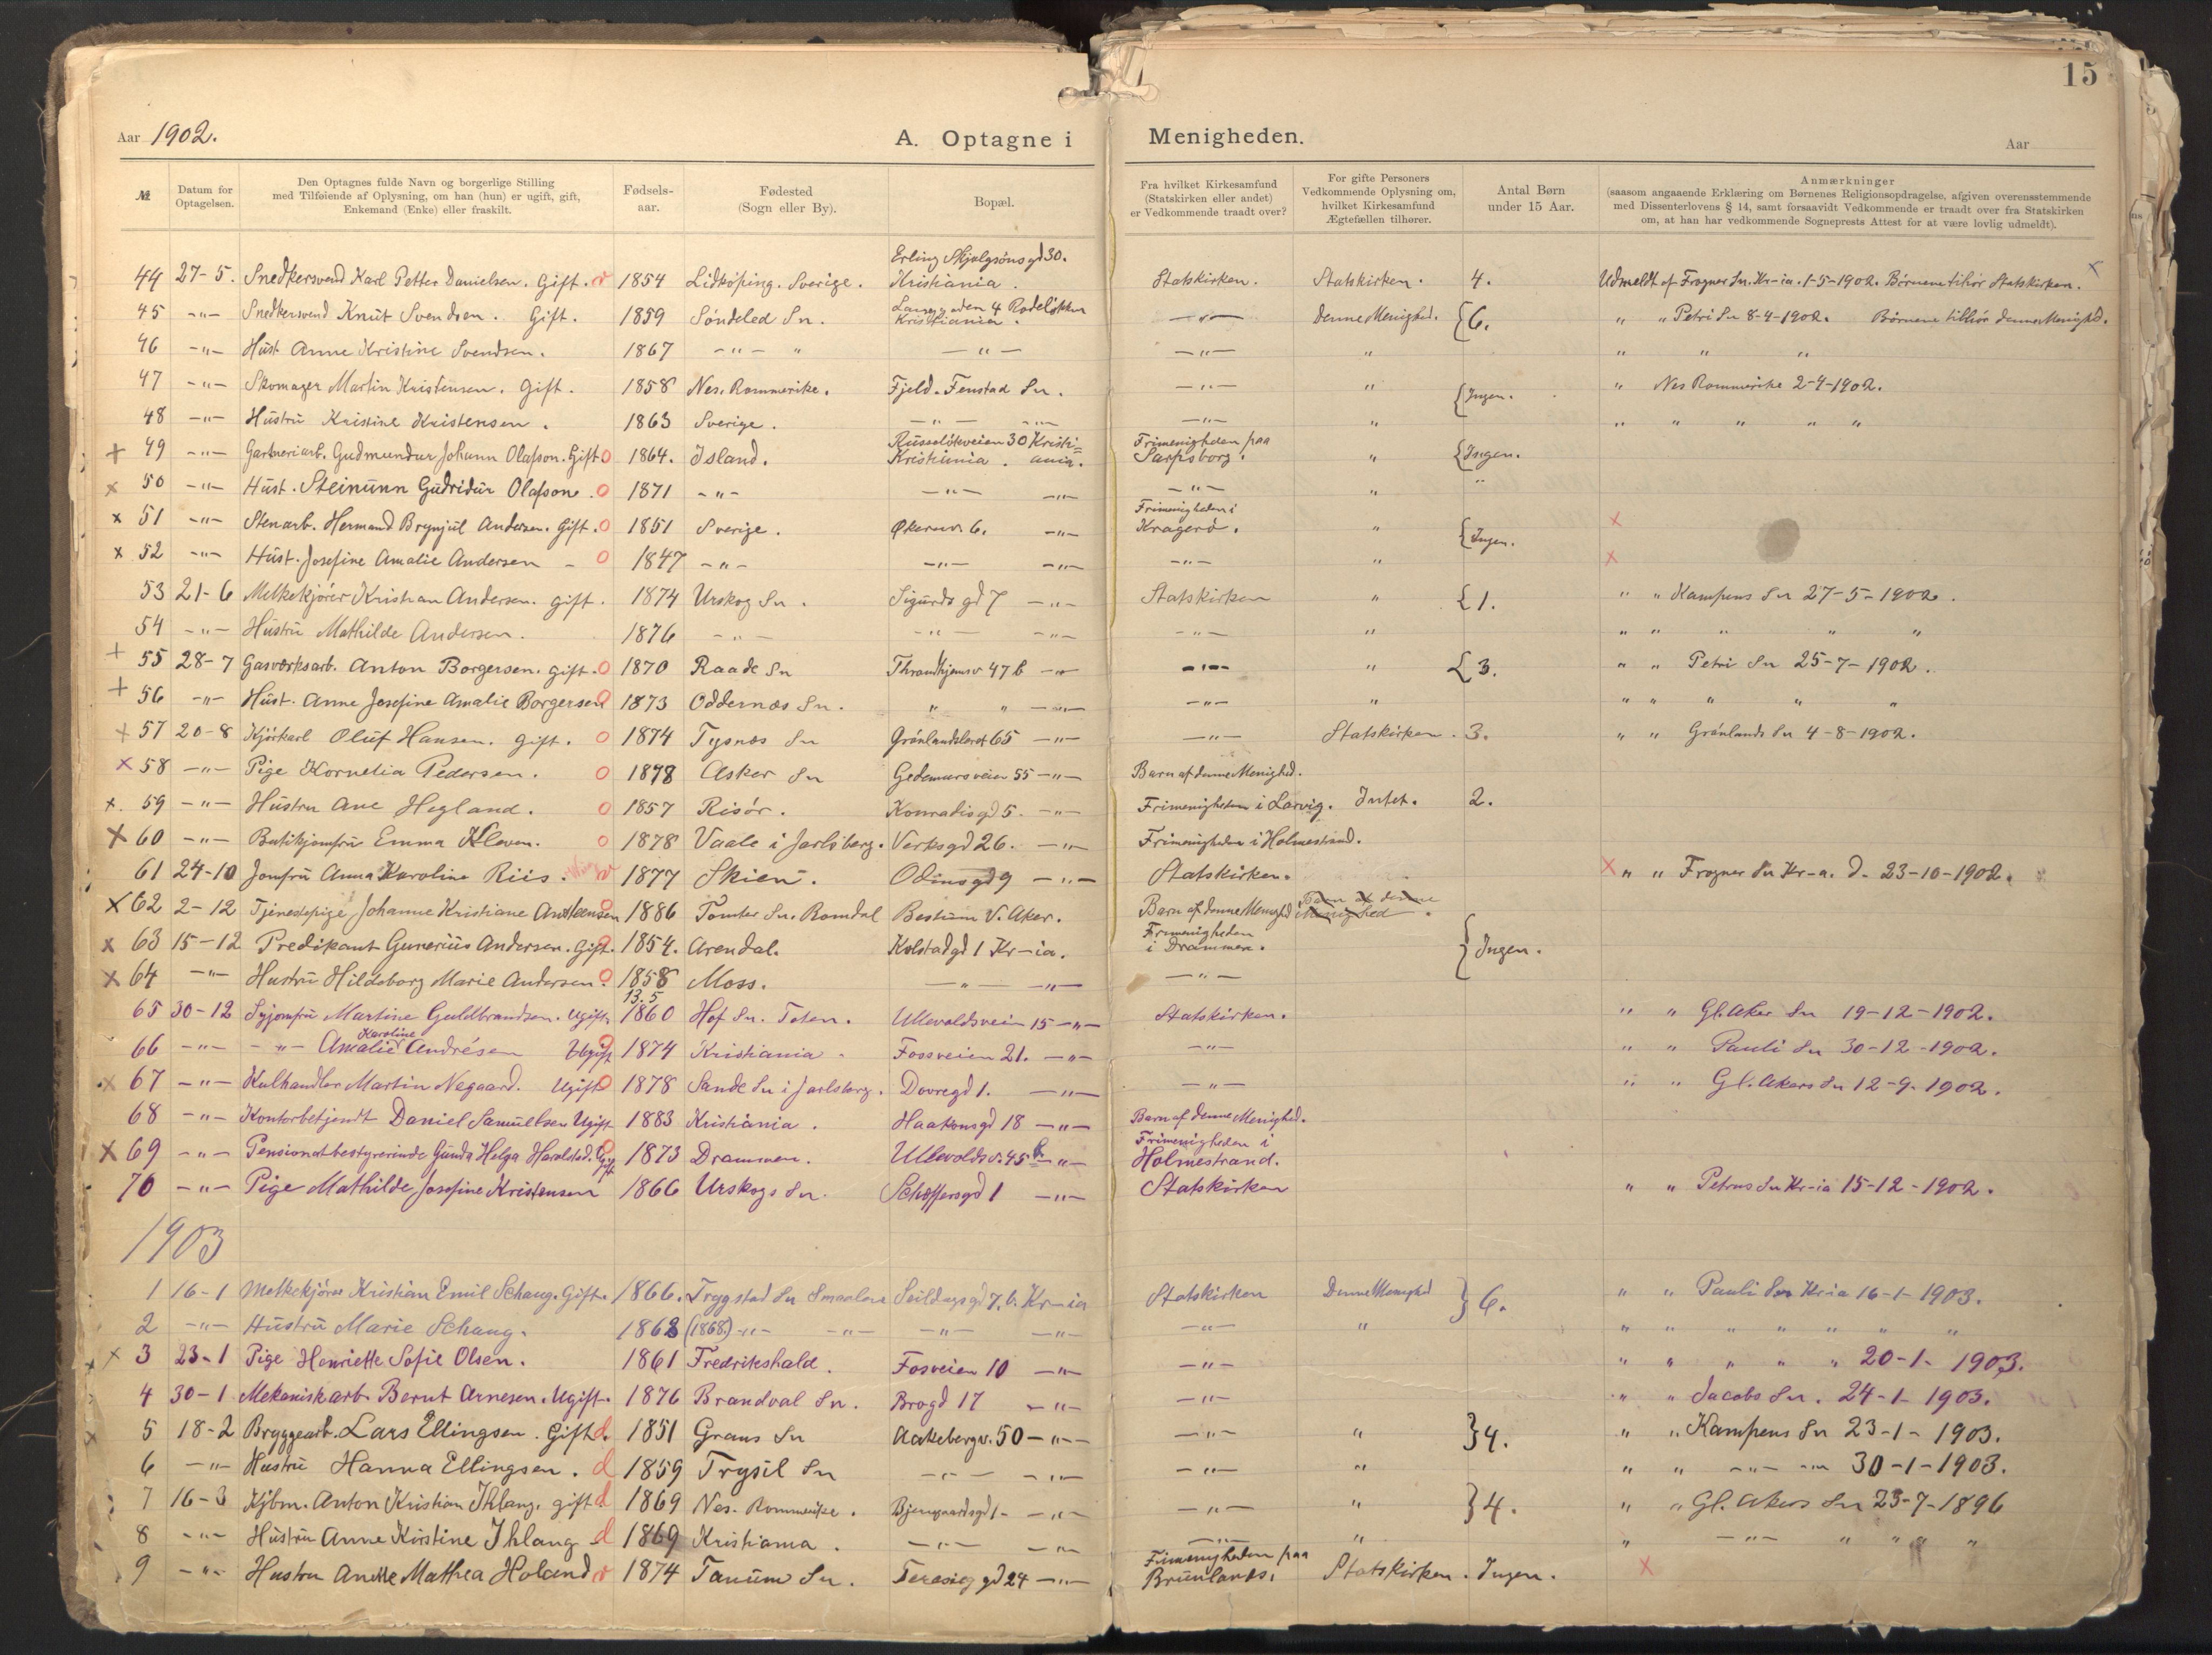 15
Aar 1902. A. Optagne i Menigheden. Aar
№
Datum for Optagelsen.
Den Optagnes fulde Navn og borgerlige Stilling med Tilføiende af Oplysning, om han (hun) er ugift, gift, Enkemand (Enke) eller fraskilt.
Fødsels-aar.
Fødested (Sogn eller By).
Bopæl.
Fra hvilket Kirkesamfund (Statskirken eller andet) er Vedkommende traadt over?
For gifte Personers Vedkommende Oplysning om, hvilket Kirkesamfund Ægtefællen tilhører.
Antal Børn under 15 Aar.
Anmærkninger (saasom angaaende Erklæring om Børnenes Religionsopdragelse, afgiven overensstemmende med Dissenterlovens § 14, samt forsaavidt Vedkommende er traadt over fra Statskirken om, at han har vedkommende Sogneprests Attest for at være lovlig udmeldt).
44 27-5. Snedkersvend Karl Petter Danielsen. Gift. 1854 Lidköping. Sverige. Erling Skjalgsönsgd 30. Kristiania. Statskirken. Statskirken. 4. Udmeldt af Frogner Sn. Kr-ia. 1-5-1902. Børnene tilhör Statskirken. x
45 -"- Snedkersvend Knut Svendsen. Gift. 1859 Söndeled Sn. 4 Rodelökken Kristiania. -"- Denne Menighed. {6. " " Petri Sn 8-4-1902. Börnene tilhör denne Menighed.
46 -"- Hust. Anne Kristine Svendsen. 1867 -"- " -"- -"- " " " "
47 -"- Skomager Martin Kristensen. Gift. 1858 Nes. Rommerike. Fjeld. Fenstad Sn. -"- " {Ingen. " Nes Rommerike 2-4-1902.
48 -"- Hustru Kristine Kristensen. 1863 Sverige. -"- -"- -"- " " " " " "
+ 49 -"- Gartneriarb. Gudmundur Johann Olafson. Gift O 1864. Island. Russelökveien 30 Kristi= Kristiania. ania. Frimenigheden paa Sarpsborg. " {Ingen.
x 50 -"- Hust. Steinunn Gudridur Olafson. O 1871 -"- -"- -"- -"- " "
x 51 -"- Stenarb. Hermand Brynjul Andersen. Gift. O 1851 Sverige. Økernv. 6. -"- Frimenigheden i Kragerö. " {Ingen. x
x 52 -"- Hust. Josefine Amalie Andersen - O 1847 -"- -"- -"- -"- " x
53 21-6 Melkekjörer Kristian Andersen. gift. 1874 Urskog Sn. Sigurds gd 7 -"- Statskirken " {1. " " Kampens Sn 27-5-1902.
54 -"- Hustru Mathilde Andersen. 1876 -"- -"- -"- -"- " " " " " "
+ 55 28-7 Gasværksarb. Anton Borgersen. gift. O 1870 Raade Sn Throndhjemsv 47 b -"- -"- " {3. " " Petri Sn 25-7-1902.
+ 56 -"- Hust. Anne Josefine Amalie Borgersen O 1873 Oddernæs Sn. " " -"- -"- " " " " " "
+ 57 20-8 Kjörkarl Oluf Hansen. gift. O 1874 Tysnæs Sn Grönlandsleret 65 -"- -"- Statskirken. 3. " " Grönlands Sn 4-8-1902.
x 58 -"- Pige Kornelia Pedersen. O 1878 Asker Sn Gedemursveien 55 -"- Barn af denne Menighed.
x. 59 -"- Hustru Ane Hegland. O 1857 Risör. Konradisgd 5. -"- Frimenigheden i Larvig. Intet. 2.
x 60 -"- Butikjomfru Emma Kleven. O 1878 Vaale i Jarlsberg. Verksgd 26. -"- Frimenigheden i Holmestrand.
61 24-10 Jomfru Anna Karoline Riis. 1877 Skien. Odinsgd 9 -"- Statskirken. x " " Frogner Sn Kr-a. d. 23-10-1902.
x 62 2-12 Tjenestepige Johanne Kristiane Andteensen O 1886 Tomter Sn. Romdal Bestum V. Aker. Barn af denne Menighed Barn af denne Menighed.
x 63 15-12 Predikant Gunerius Andersen. Gift. 1854. Arendal. Kolstadgd 1 Kr-ia. Frimenigheden i Drammen. {Ingen.
x 64 -"- Hustru Hildeborg Marie Andersen. O 1858 Moss. -"- -"- -"-
65 30-12 Syjomfru Martine Guldbrandsen. Ugift. 13.5 1860 Hof Sn. Toten. Ullevoldsveien 15 -"- Statskirken. " " Gl. Aker Sn 19-12-1902.
66 -"- -"- Amalie Karoline Andrésen Ugift 1874 Kristiania. Fossveien 21. -"- -"- " " Pauli Sn 30-12-1902.
x 67 -"- Kulhandler Martin Negaard. Ugift O 1878 Sande Sn i Jarlsberg. Dovregd 1. -"- -"- " " Gl. Akers Sn 12-9-1902.
68 -"- Kontorbetjendt Daniel Samuelsen Ugift 1883 Kristiania. Haakonsgd 18 -"- Barn af denne Menighed.
x 69 -"- Pensionatbestyrerinde Gunda Helga Harolstad. Ugift 1873 Drammen. Ullevoldsv. 45 b -"- Frimenigheden i Holmestrand.
70 -"- Pige Mathilde Josefine Kristensen 1866 Urskogs Sn. Schøffersgd 1 -"- Statskirken " " Petrus Sn Kr-ia 15-12-1902.
1903
1 16-1 Melkekjörer Kristian Emil Schaug. Gift. 1866. Trygstad Sn Smaalene Seildugsgd 7, b. Kr-ia Statskirken Denne Menighed }6. " " Pauli Sn Kr-ia 16-1-1903.
2 -"- Hustru Marie Schaug. 1868 (1868.) -"- -"- -"- -"- -"- " " " " " " " "
x 3 23-1 Pige Henriette Sofie Olsen. 1861 Fredrikshald. Fosveien 10 -"- -"- " " " " " 20-1-1903.
4 30-1 Mekaniskarb. Bernt Arnesen. Ugift. 1876 Brandval Sn. Brogd 17 -"- -"- " " Jacobs Sn. 24-1-1903.
5 18-2 Bryggearb. Lars Ellingsen. Gift d. 1851 Grans Sn Aakebergv. 50 -"- -"- " }4. " " Kampens Sn 23-1-1903.
6 -"- Hustru Hanna Ellingsen. d 1859 Trysil Sn -"- -"- -"- " " " -"- -"- 30-1-1903.
7 16-3 Kjbm. Anton Kristian Ihlang. gift d 1869 Nes. Rommerike. Bjerregaardsgd 1- -"- -"- " }4. " " Gl. Akers Sn 23-7-1896
8 -"- Hustru Anne Kirstine Ihlang d 1869 Kristiania. -"- -"- -"- " " -"- " " " "
9 -"- Hustru Anette Mathea Holand 1874 Tanum Sn. Teresiegd 24 -"- Frimenigheden paa Brunlanes. Statskirken. Ingen. x